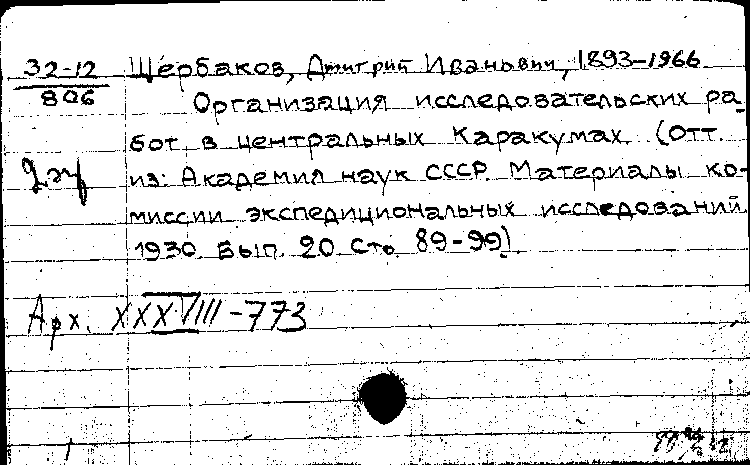 32-12 Щербаков, Дмитрий Иванович, 1893-1966
806 Организация исследовательских ра-
бот в центральных Каракумах. (Отт.
из: Академия наук СССР. Материалы ко-
миссии экспедициональных исследований
1930 Вып. 20 Стр 89-99)
Арх. XXXVIII-773